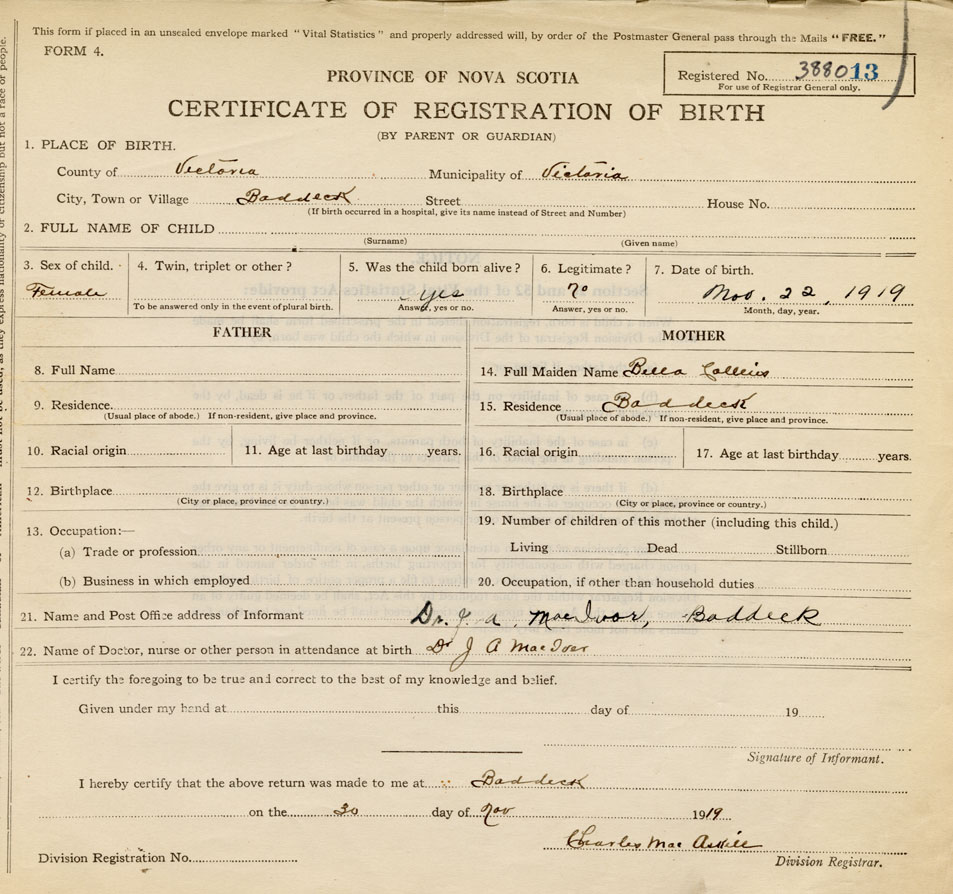 This form if placed in an unsealed envelope marked "Vital Statistics" and properly addressed will, by order of the Postmaster General pass through the Mails "FREE."
FORM 4.
PROVINCE OF NOVA SCOTIA
Registered No. 388013
For use of Registrar General only.
CERTIFICATE OF REGISTRATION OF BIRTH
(BY PARENT OR GUARDIAN)
1. PLACE OF BIRTH.
County of Victoria Municipality of Victoria
City, Town or Village Baddeck Street House No.
(If birth occurred in a hospital, give its name instead of Street and Number)
2. FULL NAME OF CHILD
(Surname) (Given name)
3. Sex of child. 4. Twin, triplet or other? 5. Was the child born alive? 6. Legitimate? 7. Date of birth.
Female yes no Nov. 22, 1919
To be answered only in the event of plural birth. Answer, yes or no. Answer, yes or no. Month, day, year.
FATHER MOTHER
8. Full Name 14. Full Maiden Name Bella Collins
9. Residence. 15. Residence Baddeck
(Usual place of abode.) If non-resident, give place and province. (Usual place of abode.) If non-resident, give place and province.
10. Racial origin 11. Age at last birthday years. 16. Racial origin 17. Age at last birthday years.
12. Birthplace 18. Birthplace
(City or place, province or country.) (City or place, province or country.)
13. Occupation:— 19. Number of children of this mother (including this child.)
(a) Trade or profession Living Dead Stillborn
(b) Business in which employed 20. Occupation, if other than household duties
21. Name and Post Office address of Informant Dr. J. A. MacIvor, Baddeck
22. Name of Doctor, nurse or other person in attendance at birth Dr J A MacIver
I certify the foregoing to be true and correct to the best of my knowledge and belief.
Given under my hand at this day of 19
Signature of Informant.
I hereby certify that the above return was made to me at Baddeck
on the 30 day of Nov 1919
Charles Mac Askill
Division Registration No. Division Registrar.